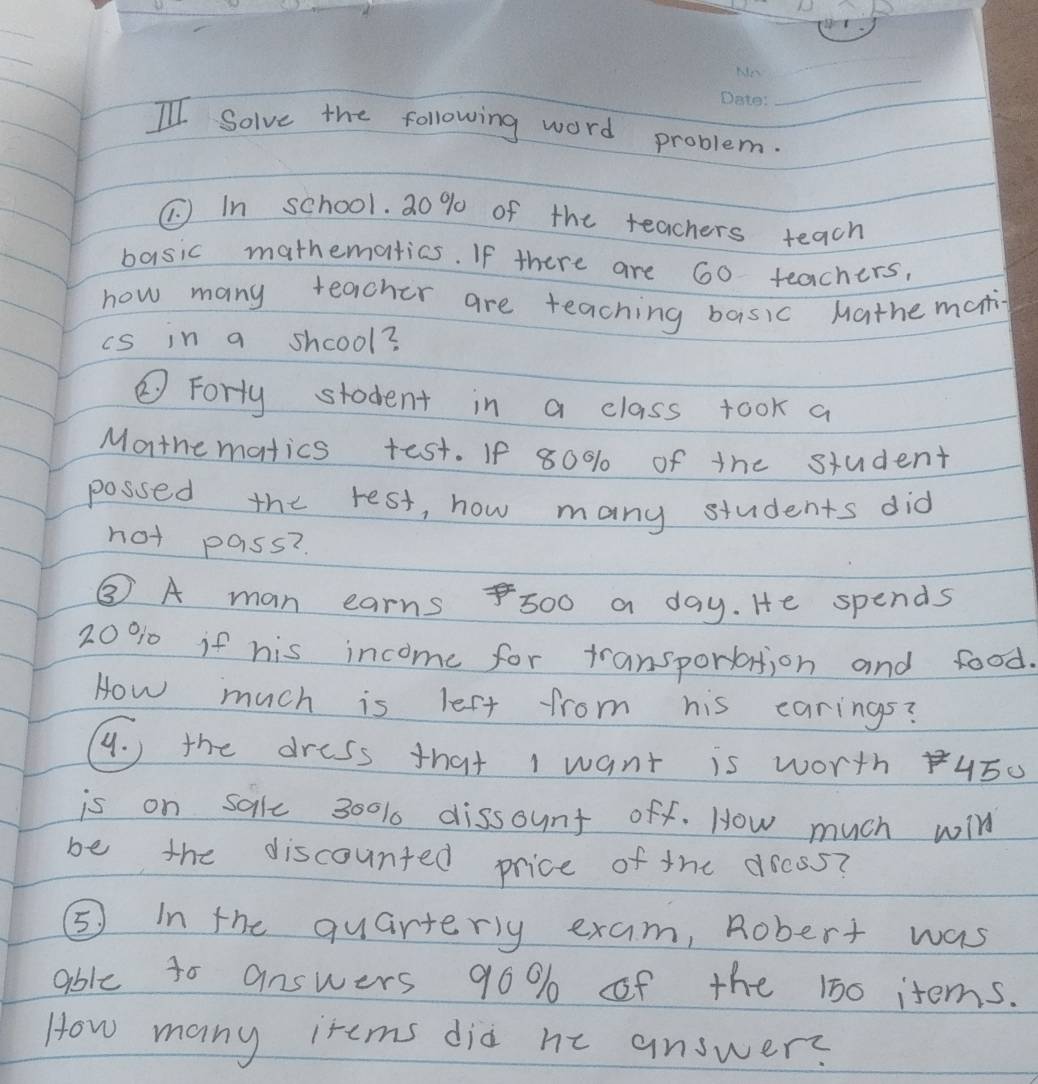 No
Date:
III Solve the following word problem.
1. In school. 20% of the teachers teach
basic mathematics. If there are 60 teachers,
how many teacher are teaching basic Mathemati-
cs in a shcool?
2. Forty stodent in a class took a
Mathematics test. If 80% of the student
possed the test, how many students did
not pass?
3 A man earns ₱500 a day. He spends
20% if his income for transportation and food.
How much is left from his earings?
4. the dress that I want is worth ₱450
is on sale 30% dissount off. How much will
be the discounted price of the dress?
5. In the quarterly exam, Robert was
able to answers 90% of the 150 items.
How many items did he answer?